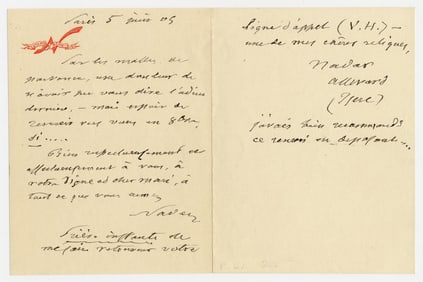 Paris 5 juin 05
Sur les malles de
une douleur de
n'avoir pu vous dire l'adieu
dernier, — mais espoir de
revoir vous en 8bre,
si.....
Bien respectueusement et
affectueusement à vous, à
votre digne et cher mari, à
tout ce que vous aimez
Nadar
Prière instante de
me faire retourner votre
ligne d'appel (V.H.) —
une de mes chères reliques,
Nadar
Allevard
(Isère)
j'avais bien recommandé
ce renvoi en déposant...